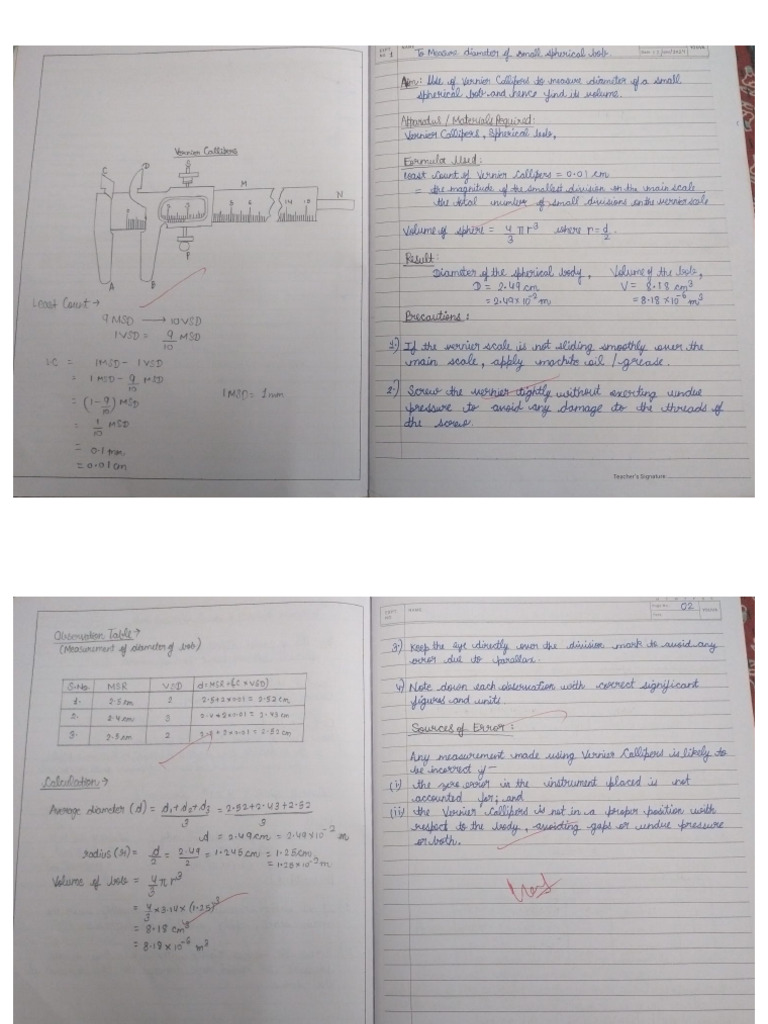 Vernier Callipers
C
D
S
M
N
A
B
P
Least Count →
9 MSD → 10 VSD
1 VSD = 9/10 MSD
LC = 1MSD - 1VSD
= 1 MSD - 9/10 MSD
= (1 - 9/10) MSD
1 MSD = 1mm
= 1/10 MSD
= 0.1 mm
= 0.01 cm
To Measure diameter of small spherical bob.
Aim: Use of Vernier Callipers to measure diameter of a small
spherical bob and hence find its volume.
Apparatus / Materials Required:
Vernier Callipers, Spherical bob,
Formula Used:
Least Count of Vernier Callipers = 0.01 cm
= the magnitude of the smallest division on the main scale
the total number of small divisions on the vernier scale
Volume of sphere = 4/3 π r³ where r = d/2.
Result:
Diameter of the spherical body, Volume of the bob,
D = 2.49 cm V = 8.18 cm³
= 2.49×10⁻² m = 8.18×10⁻⁶ m³
Precautions:
1.) If the vernier scale is not sliding smoothly over the
main scale, apply machine oil / grease.
2.) Screw the vernier tightly without exerting undue
pressure to avoid any damage to the threads of
the screw.
Teacher's Signature
Observation Table →
(Measurement of diameter of bob)
S.No. MSR VSD d=MSR+(LC×VSD)
1. 2.5cm 2 2.5+2×0.01 = 2.52 cm
2. 2.4cm 3
3. 2
Calculation →
Average diameter (d) = d₁+d₂+d₃/3 = 2.52+2.43+2.52/3
d = 2.49cm = 2.49×10⁻² m
radius (r) = d/2 = 2.49/2 = 1.245cm = 1.25cm
= 1.25×10⁻² m
Volume of bob = 4/3 π r³
= 4/3 × 3.14 × (1.25)³
= 8.18 cm³
= 8.18×10⁻⁶ m³
02
3.) Keep the eye directly over the division mark to avoid any
error due to parallax.
4.) Note down each observation with correct significant
figures and units.
Sources of Error:
Any measurement made using Vernier Callipers is likely to
be incorrect if—
(i) the zero error in the instrument placed is not
accounted for; and
(ii) the Vernier Callipers is not in a proper position with
respect to the body, avoiding gaps or undue pressure
or both.